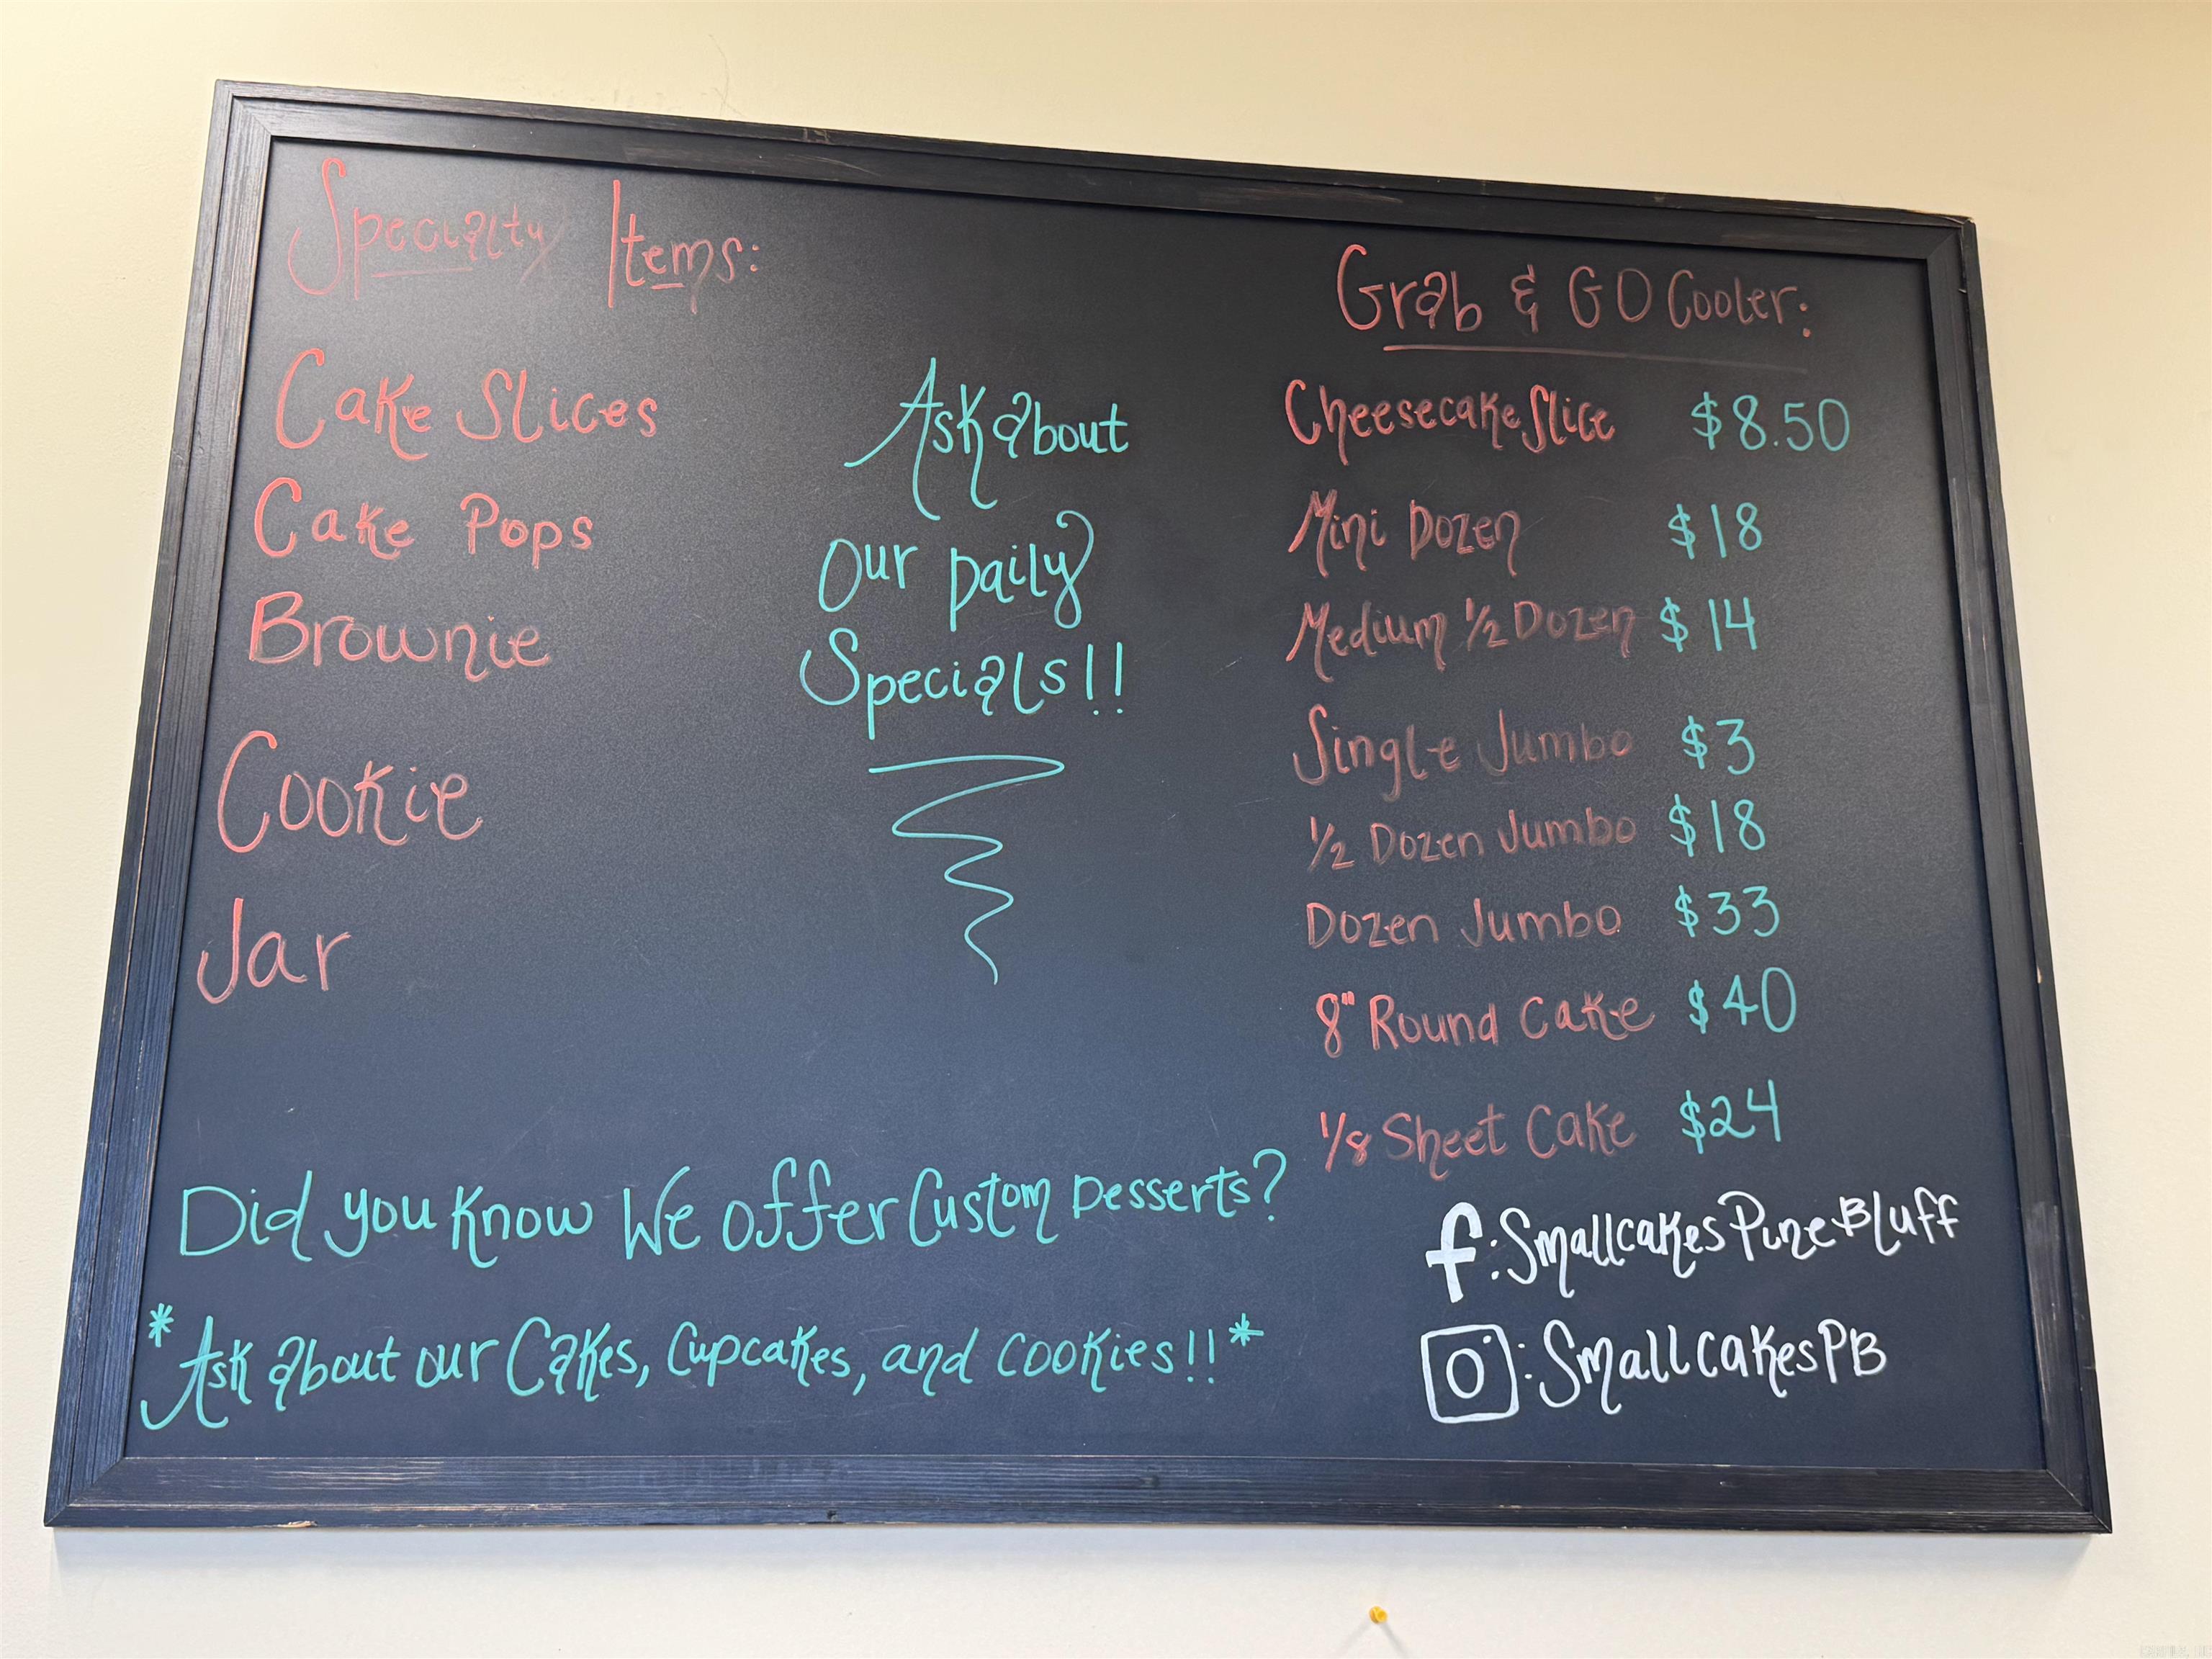 Specialty Items:
Cake Slices
Cake Pops
Brownie
Cookie
Jar
Ask about
Our Daily
Specials!!
Grab & GO Cooler:
Cheesecake Slice $8.50
Mini Dozen $18
Medium 1/2 Dozen $14
Single Jumbo $3
1/2 Dozen Jumbo $18
Dozen Jumbo $33
8" Round Cake $40
1/8 Sheet Cake $24
Did you Know We offer Custom Desserts?
*Ask about our Cakes, Cupcakes, and cookies!!*
f: SmallcakesPineBluff
: SmallcakesPB